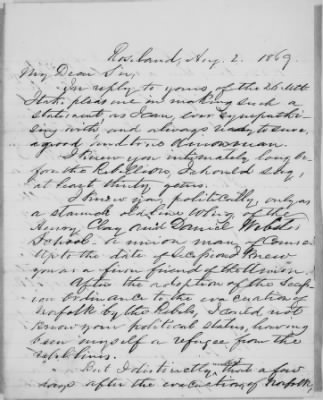 Roseland, Aug. 2. 1869
My Dear Sir,
In reply to yours, of the 26. Ulto
I take pleasure in making such a
statement as I can, ever sympathi-
sing with, and always ready to serve,
a good and true Union man.
I knew you intimately long be-
fore the Rebellion, I should say,
at least thirty years.
I knew you politically, only as
a staunch old line Whig of the
Henry Clay and Daniel Webster
School - a union man, of course
Up to the date of secession I knew
you as a firm friend of the Union.
After the adoption of the Secess-
ion Ordinance to the evacuation of
Norfolk by the Rebels, I could not
know your political status, having
been myself a refugee from the
rebel lines.
But I distinctly that a few
days after the evacuation of Norfolk,